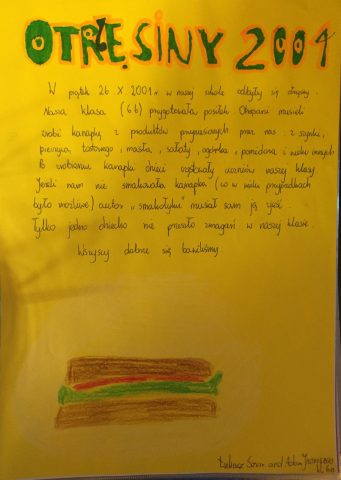 OTRZĘSINY 2001
W piątek 26 X 2001r. w naszej szkole odbyły się otrzęsiny.
Nasza klasa (6b) przygotowała posiłek. Otrzęsani musieli
zrobić kanapkę z produktów przyniesionych przez nas: z szynki,
pieczywa tostowego, masła, sałaty, ogórka, pomidora i wielu innych.
Po zrobieniu kanapki dzieci częstowały uczniów naszej klasy.
Jeżeli nam nie smakowała kanapka (co w wielu przypadkach
było możliwe) autor "smakołyku" musiał sam ją zjeść.
Tylko jedno dziecko nie przeszło zmagań w naszej klasie.
Wszyscy dobrze się bawiliśmy.
Łukasz and Adam
kl. 6b